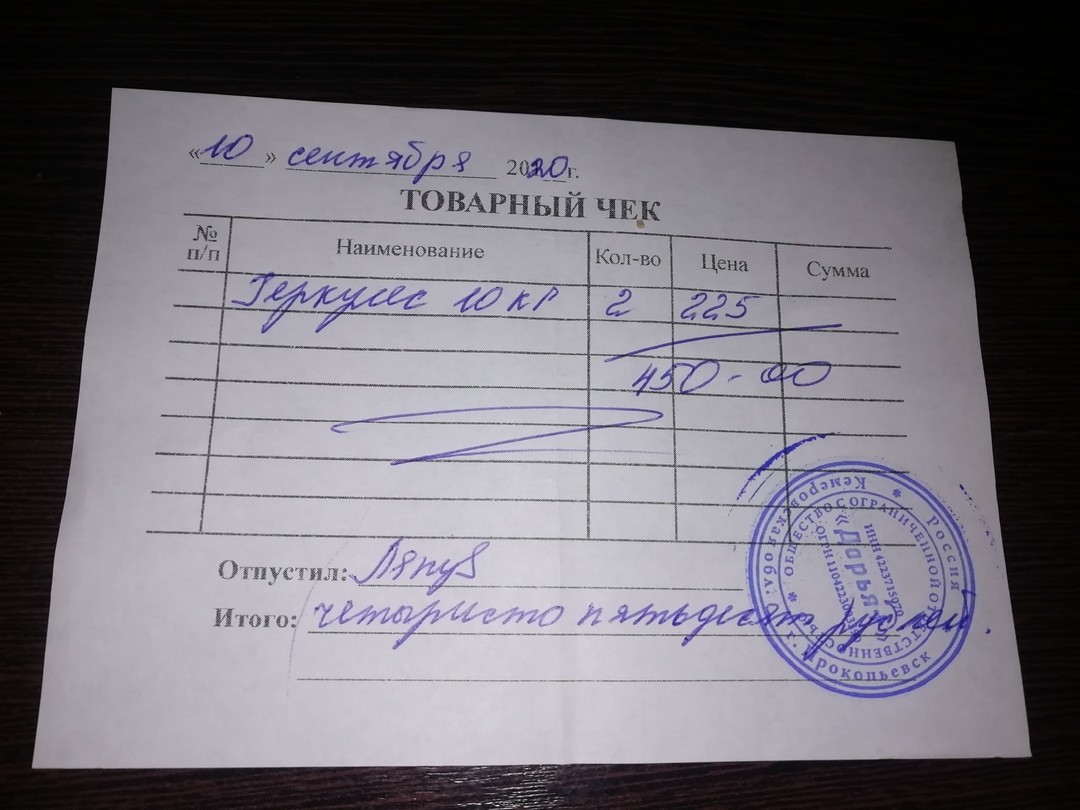 «10» сентября 2020 г.
ТОВАРНЫЙ ЧЕК
№ п/п Наименование Кол-во Цена Сумма
Геркулес 10 кг 2 225
450-00
Отпустил:
Итого: четыристо пятьдесят рублей
Россия * Кемеровская обл. * г. Прокопьевск
ОБЩЕСТВО С ОГРАНИЧЕННОЙ ОТВЕТСТВЕННОСТЬЮ
«Дарья»